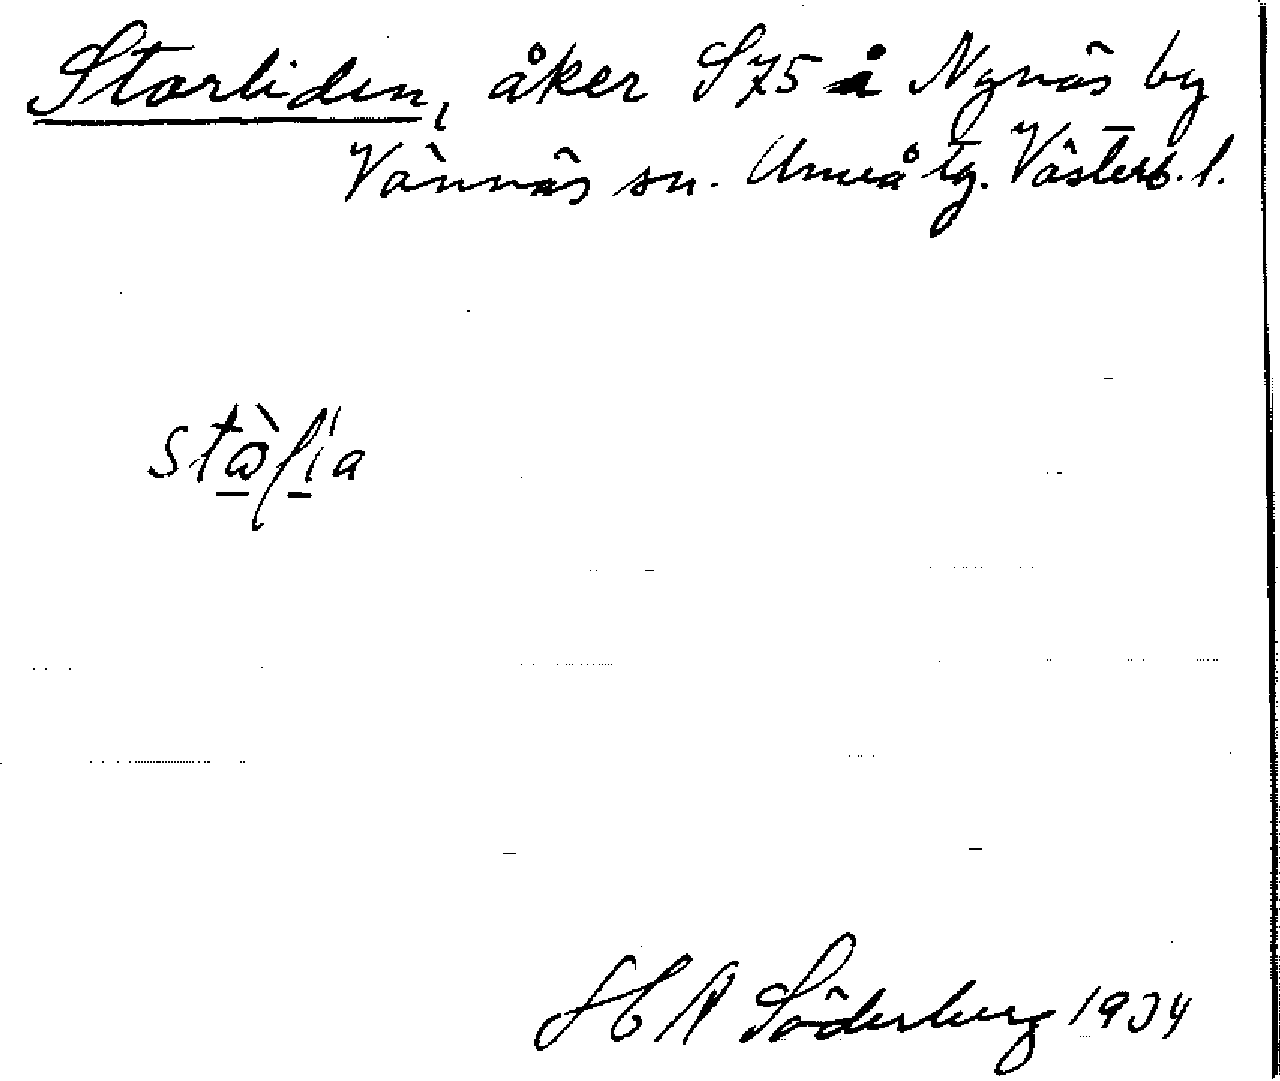 Storliden, åker S75 å Nynäs by
Vännäs sn. Umeå tg. Västerb. l.
H A Söderberg 1934